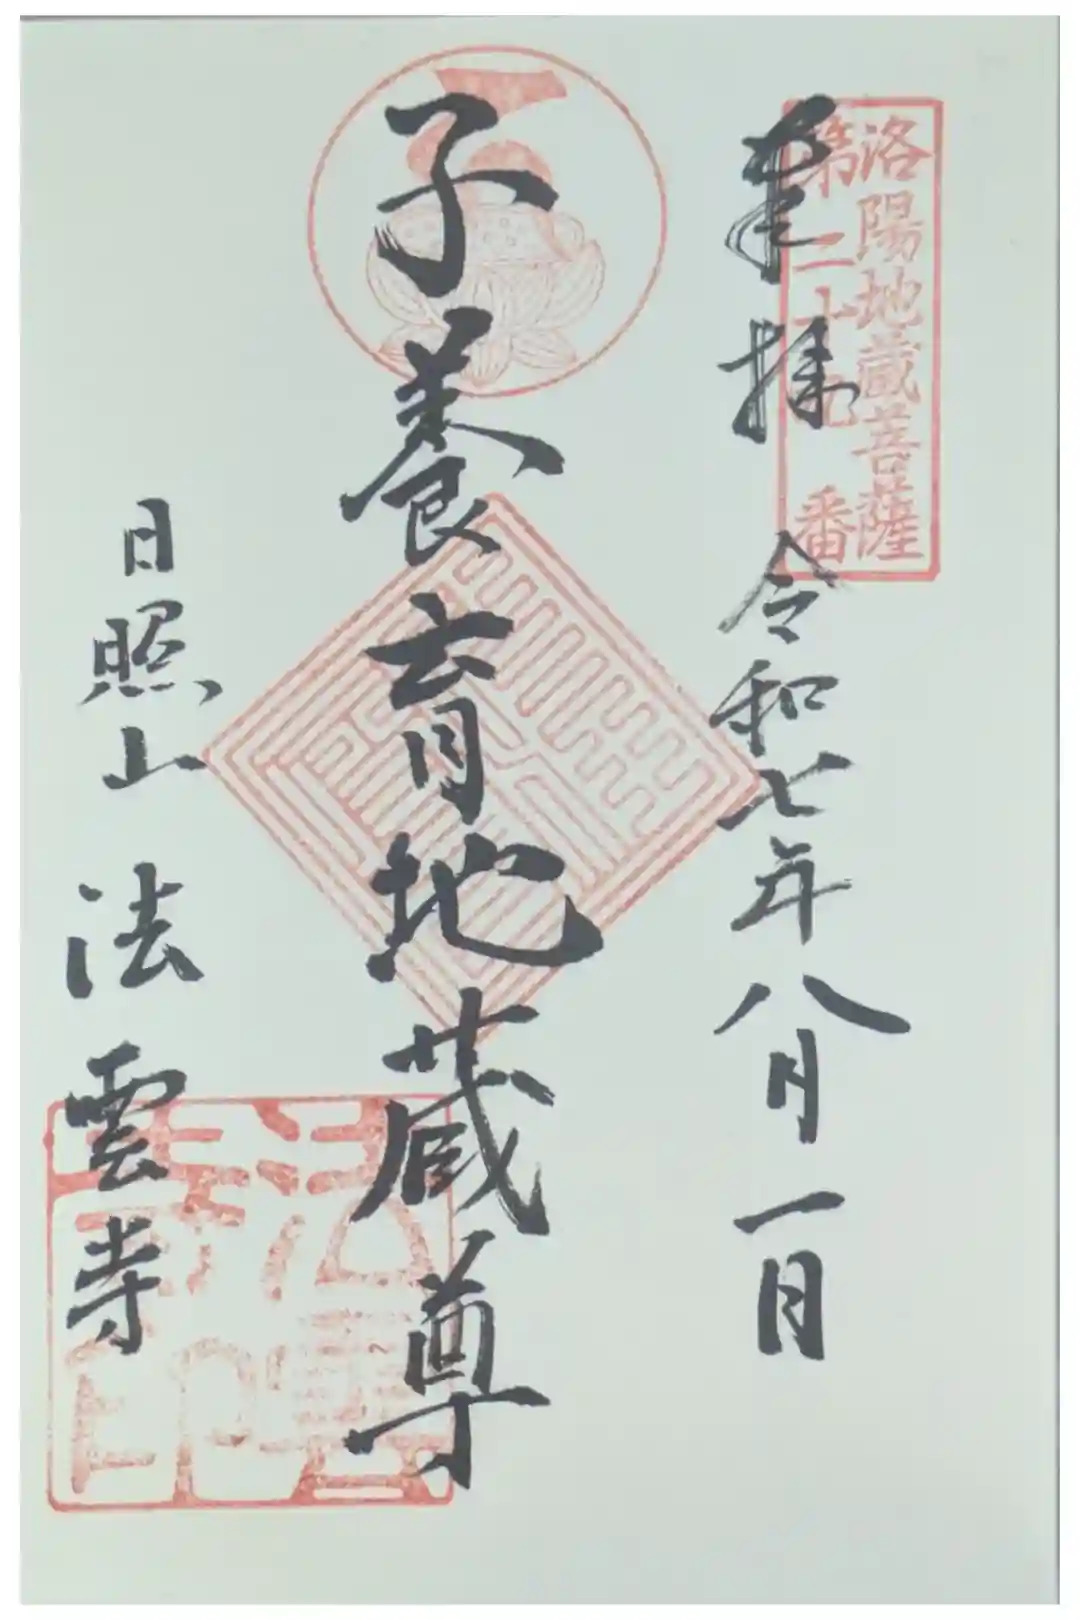 洛陽地蔵菩薩
第二十九番
奉拝 令和七年八月一日
子養育地蔵尊
日照山 法雲寺
法雲寺印